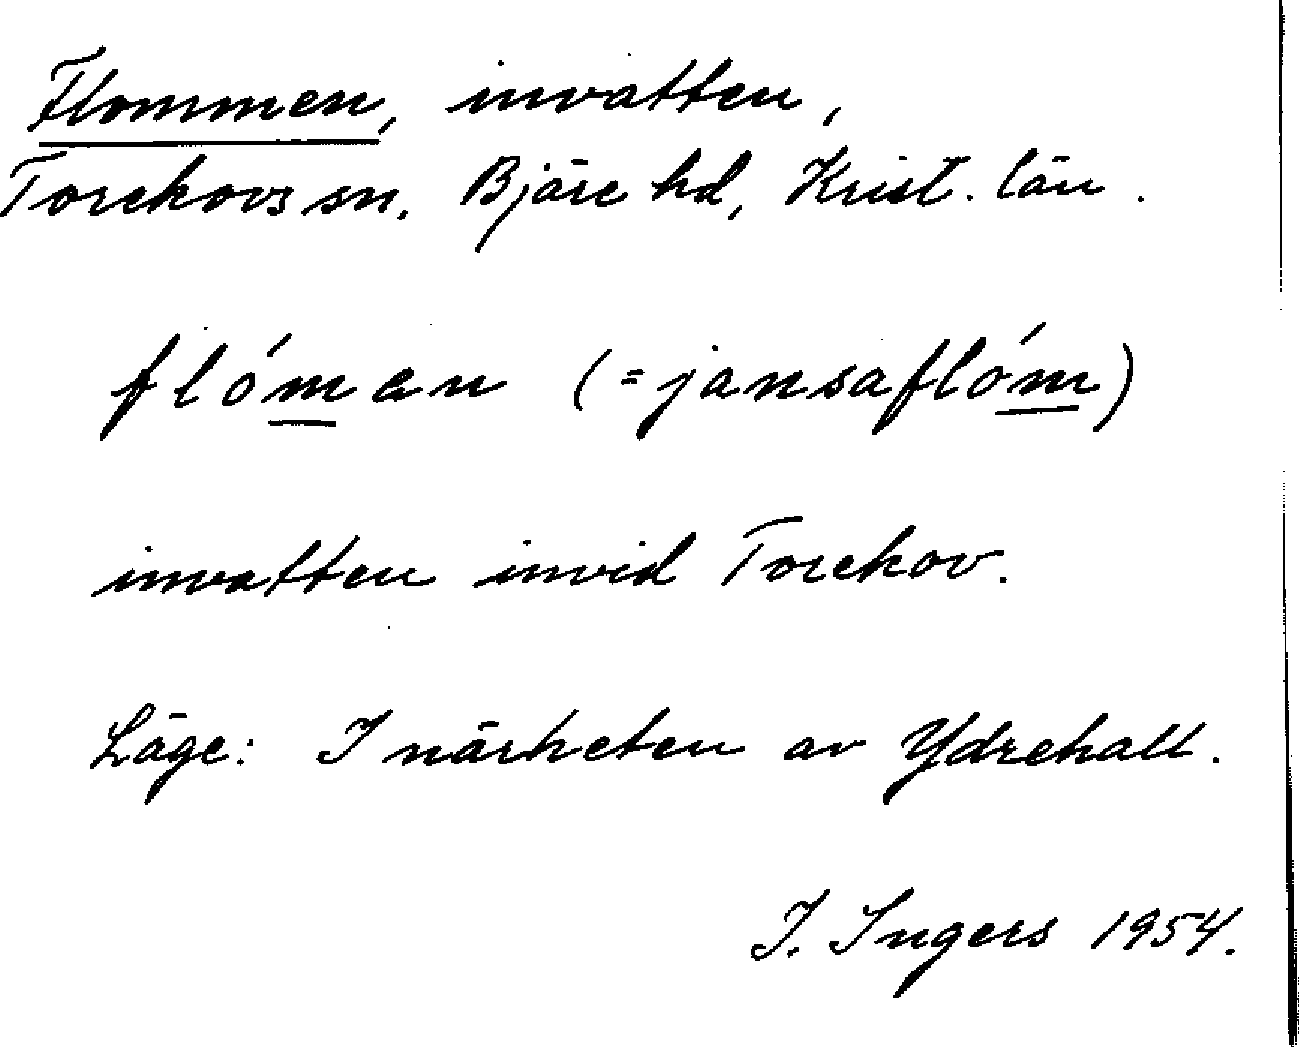 Flommen, invatten,
Torekovs sn. Bjäre hd, Krist. län.
flóman (=jansaflóm)
invatten invid Torekov.
Läge: I närheten av Ydrehall.
I. Ingers 1954.